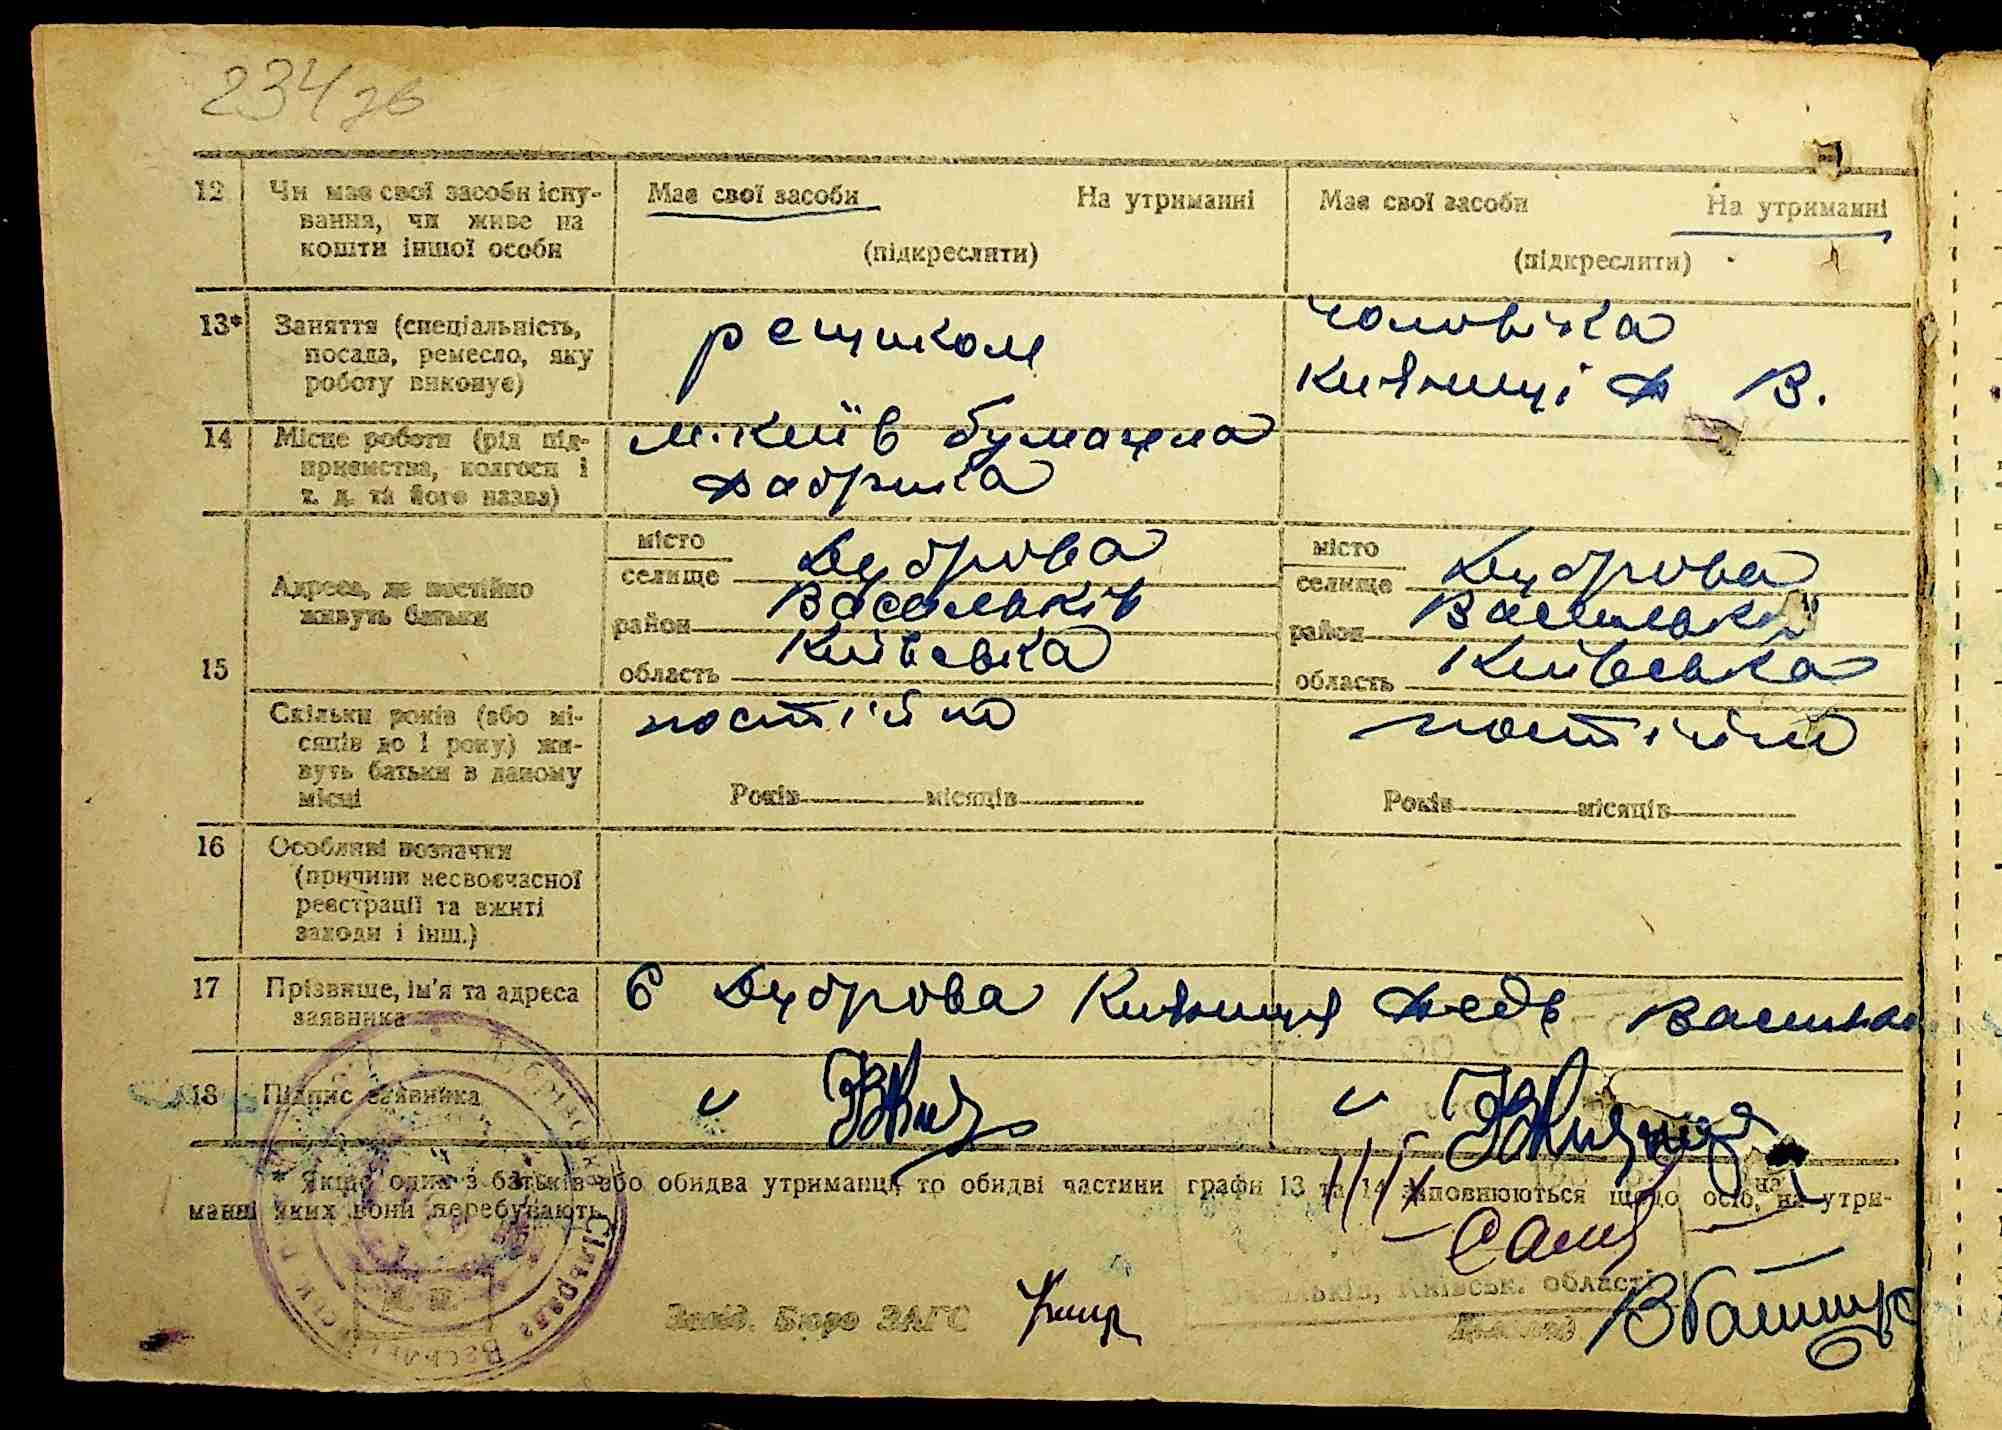 234 зв
12 Чи має свої засоби існу-
вання, чи живе на
кошти іншої особи
Має свої засоби На утриманні
(підкреслити)
Має свої засоби На утриманні
(підкреслити)
13* Заняття (спеціальність,
посада, ремесло, яку
роботу виконує)
рещиком
чоловіка
Княжиці Ф В.
14 Місце роботи (рід під-
приємства, колгосп і
т. д. та його назва)
м. Київ бумажна
фабрика
15 Адреса, де постійно
живуть батьки
місто
селище Дуброва
район Васильків
область Київська
місто
селище Дуброва
район Васильків
область Київська
Скільки років (або мі-
сяців до 1 року) жи-
вуть батьки в даному
місці
постійно
Років місяців
постійно
Років місяців
16 Особливі позначки
(причини несвоєчасної
реєстрації та вжиті
заходи і інш.)
17 Прізвище, ім'я та адреса
заявника
с Дуброва Федь
18 Підпис заявника
* Якщо один з батьків або обидва утриманці, то обидві частини графи 13 та 14 заповнюються щодо осіб, на утри-
манні яких вони перебувають.
М. П.
Завід. Бюро ЗАГС
Діловод
Васильків, Київськ. області
Сільрада